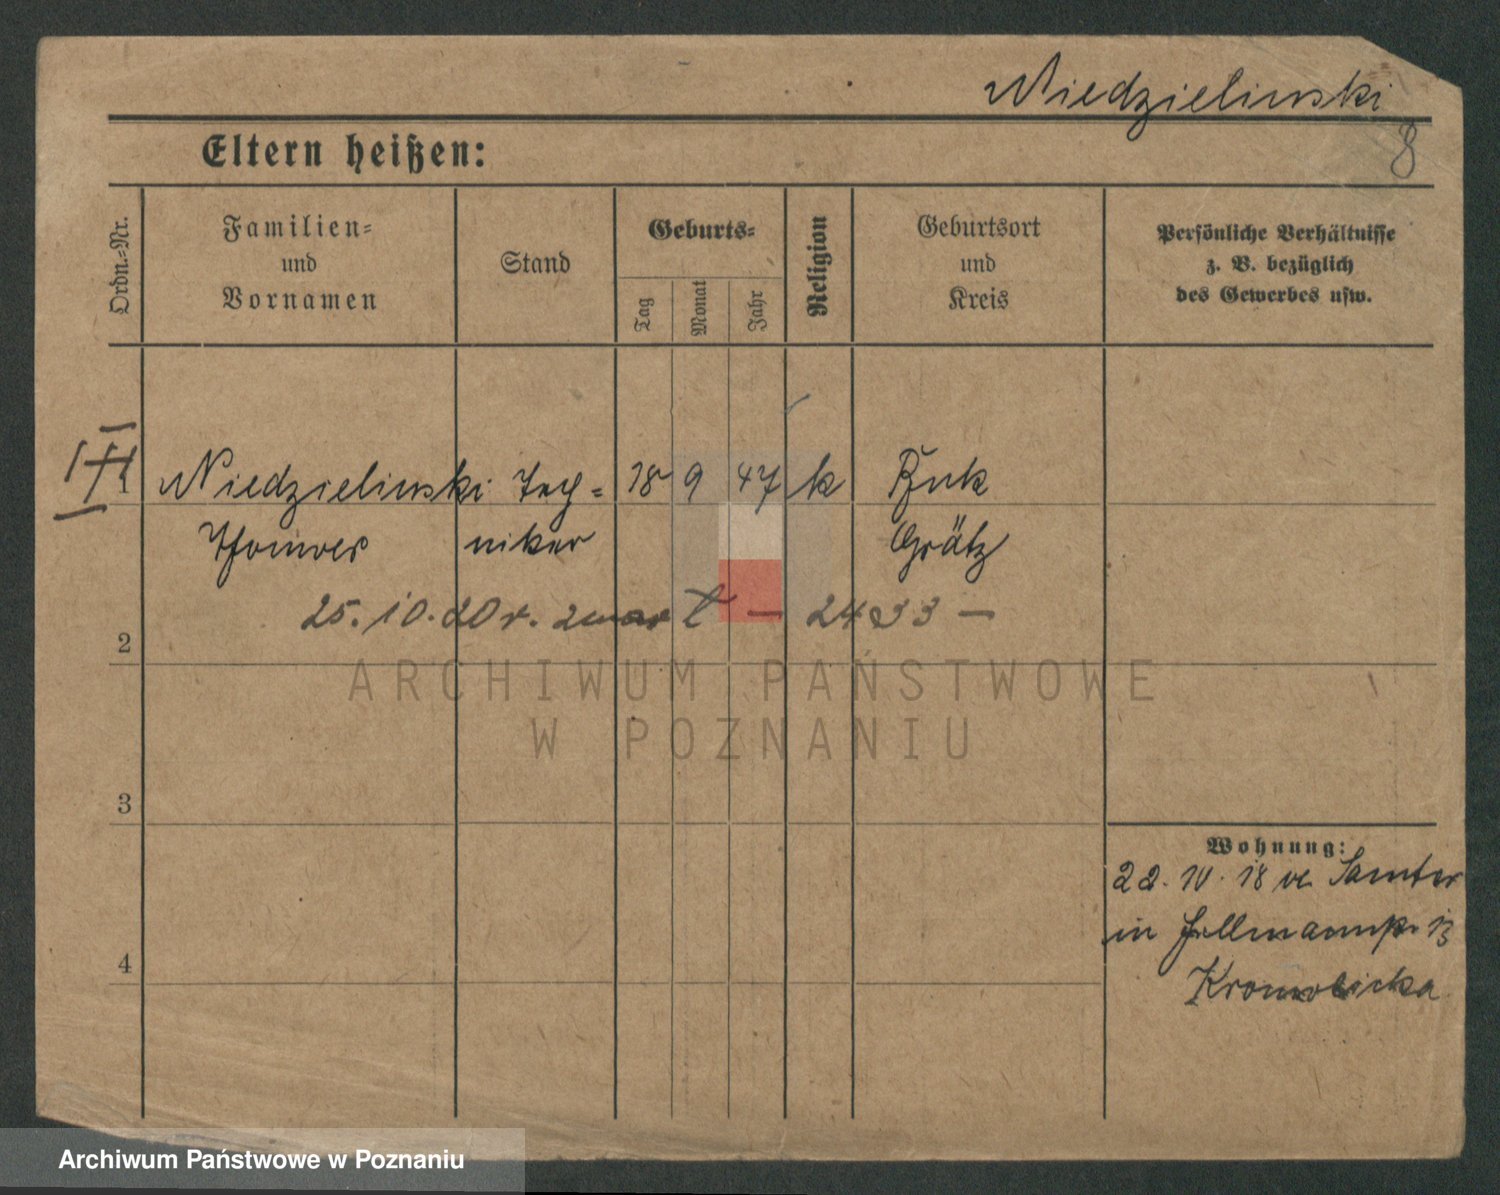 Niedzielinski
8
Eltern heißen:
Ordn.-Nr.
Familien-
und
Vornamen
Stand
Geburts-
Tag
Monat
Jahr
Religion
Geburtsort
und
Kreis
Persönliche Verhältnisse
z. B. bezüglich
des Gewerbes usw.
1 Niedzielinski Tech- 18 9 47 k Buk
Thomas niker Grätz
25.10.20 r. zmarł — 2433 —
2
3
4
Wohnung:
22. 10. 18 Samter
in 13
ARCHIWUM PAŃSTWOWE
W POZNANIU
Archiwum Państwowe w Poznaniu